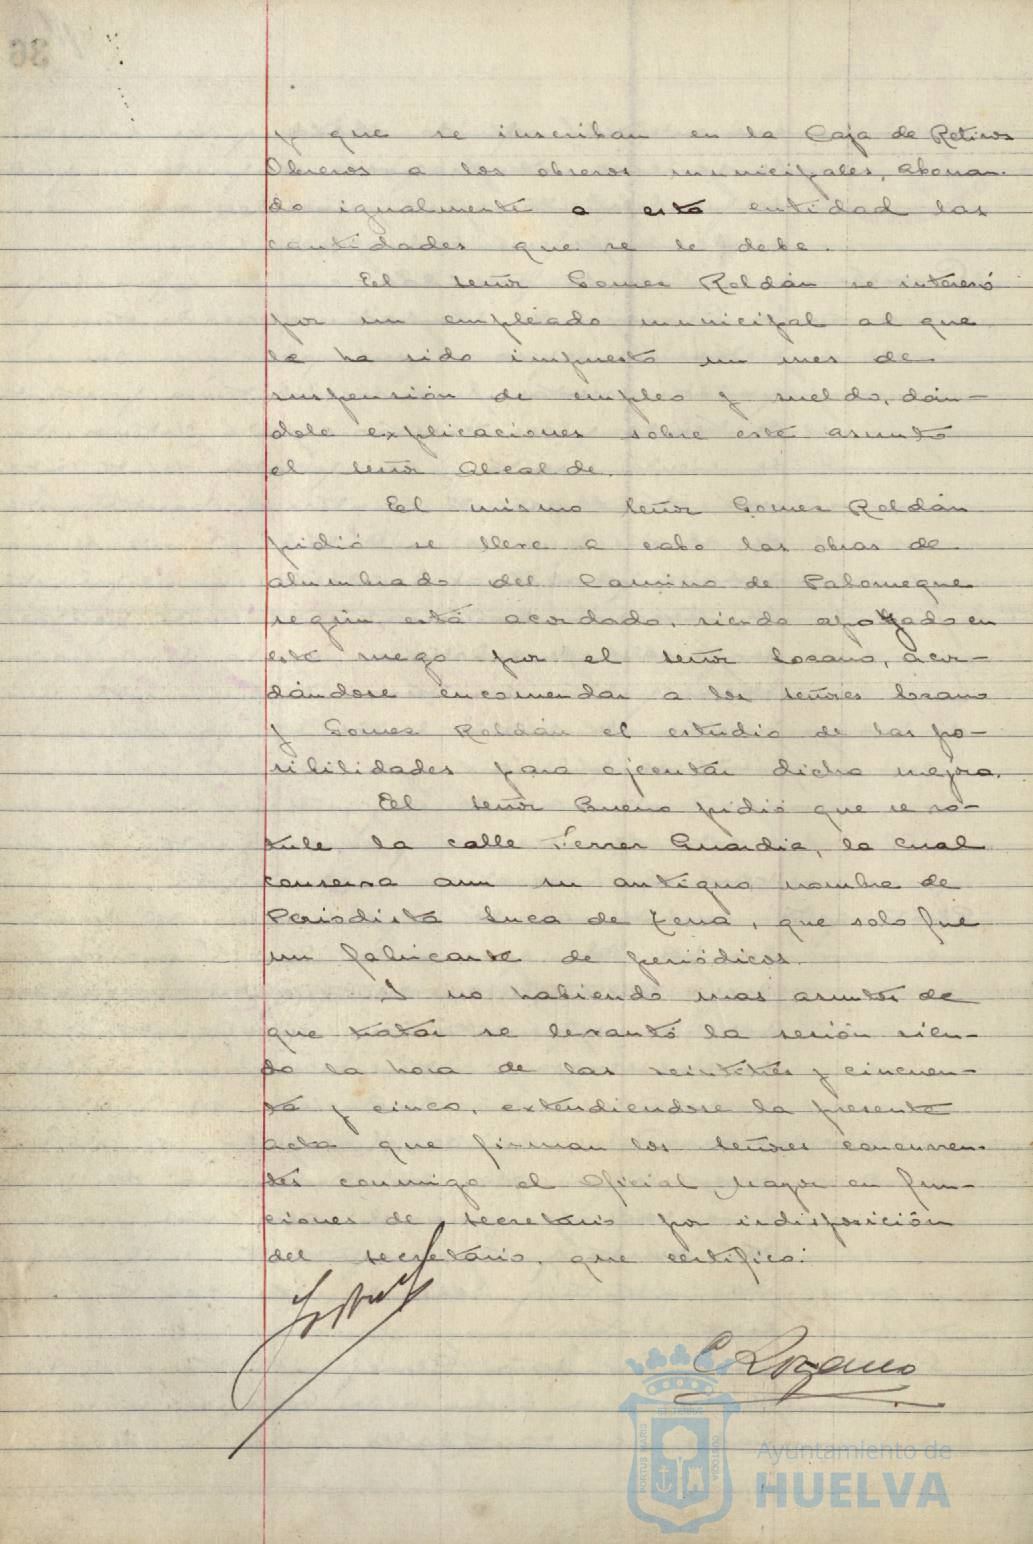 y que se inscriban en la Caja de Retiros
Obreros a los obreros municipales, abonan-
do igualmente a esta entidad las
cantidades que se le debe.
El señor Gomez Roldán se interesó
por un empleado municipal al que
le ha sido impuesto un mes de
suspensión de empleo y sueldo, dán-
dole explicaciones sobre este asunto
el señor Alcalde.
El mismo señor Gomez Roldán
pidió se lleve a cabo las obras de
alumbrado del Camino de Palomeque
según está acordado, siendo apoyado en
este ruego por el señor Lozano, acor-
dándose encomendar a los señores Lozano
y Gomez Roldán el estudio de las po-
sibilidades para ejecutar dicha mejora.
El señor Bueno pidió que se ro-
tule la calle Ferrer Guardia, la cual
conserva aun su antiguo nombre de
Periodista Luca de Tena, que solo fue
un fabricante de periódicos.
Y no habiendo mas asuntos de
que tratar se levantó la sesión sien-
do la hora de las veintitrés y cincuen-
ta y cinco, extendiendose la presente
acta que firman los señores concurren-
tes conmigo el Oficial Mayor en fun-
ciones de secretario por indisposición
del secretario, que certifico:
C Lozano
PORTUS MARIS
CUSTODIA
Ayuntamiento de
HUELVA